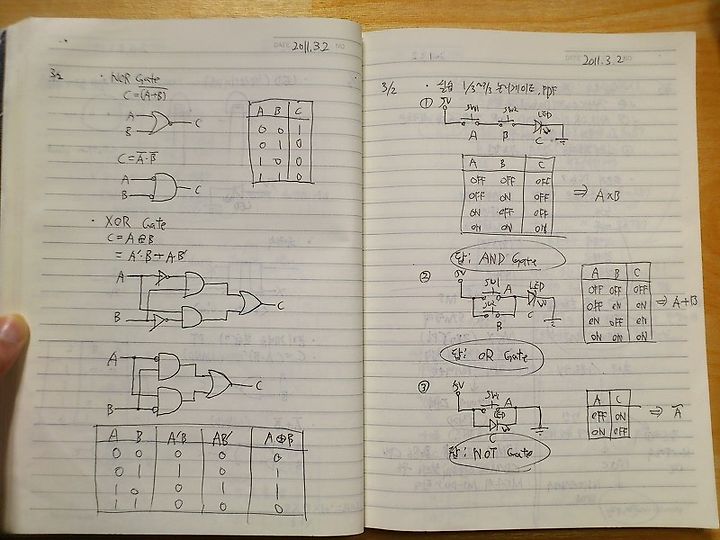 2011.3.2
3/2
· NOR Gate
C = (A+B)
A
B
C
A B C
0 0 1
0 1 0
1 0 0
1 1 0
C = A̅·B̅
A
B
C
· XOR Gate
C = A⊕B
= A'·B + A·B'
A
B
C
A
B
C
A B A'B AB' A⊕B
0 0 0 0 0
0 1 1 0 1
1 0 0 1 1
1 1 0 0 0
2011.3.2
3/2 · 실습 1/3~3/3 논리게이트.PDF
①
5V
SW1
SW2
LED
A
B
C
A B C
OFF OFF OFF
OFF ON OFF
ON OFF OFF
ON ON ON
⇒ A×B
답: AND Gate
②
5V
SW1
A
SW2
B
LED
C
A B C
OFF OFF OFF
OFF ON ON
ON OFF ON
ON ON ON
⇒ A+B
답: OR Gate
③
5V
SW1
A
LED
C
A C
OFF ON
ON OFF
⇒ A̅
답: NOT Gate